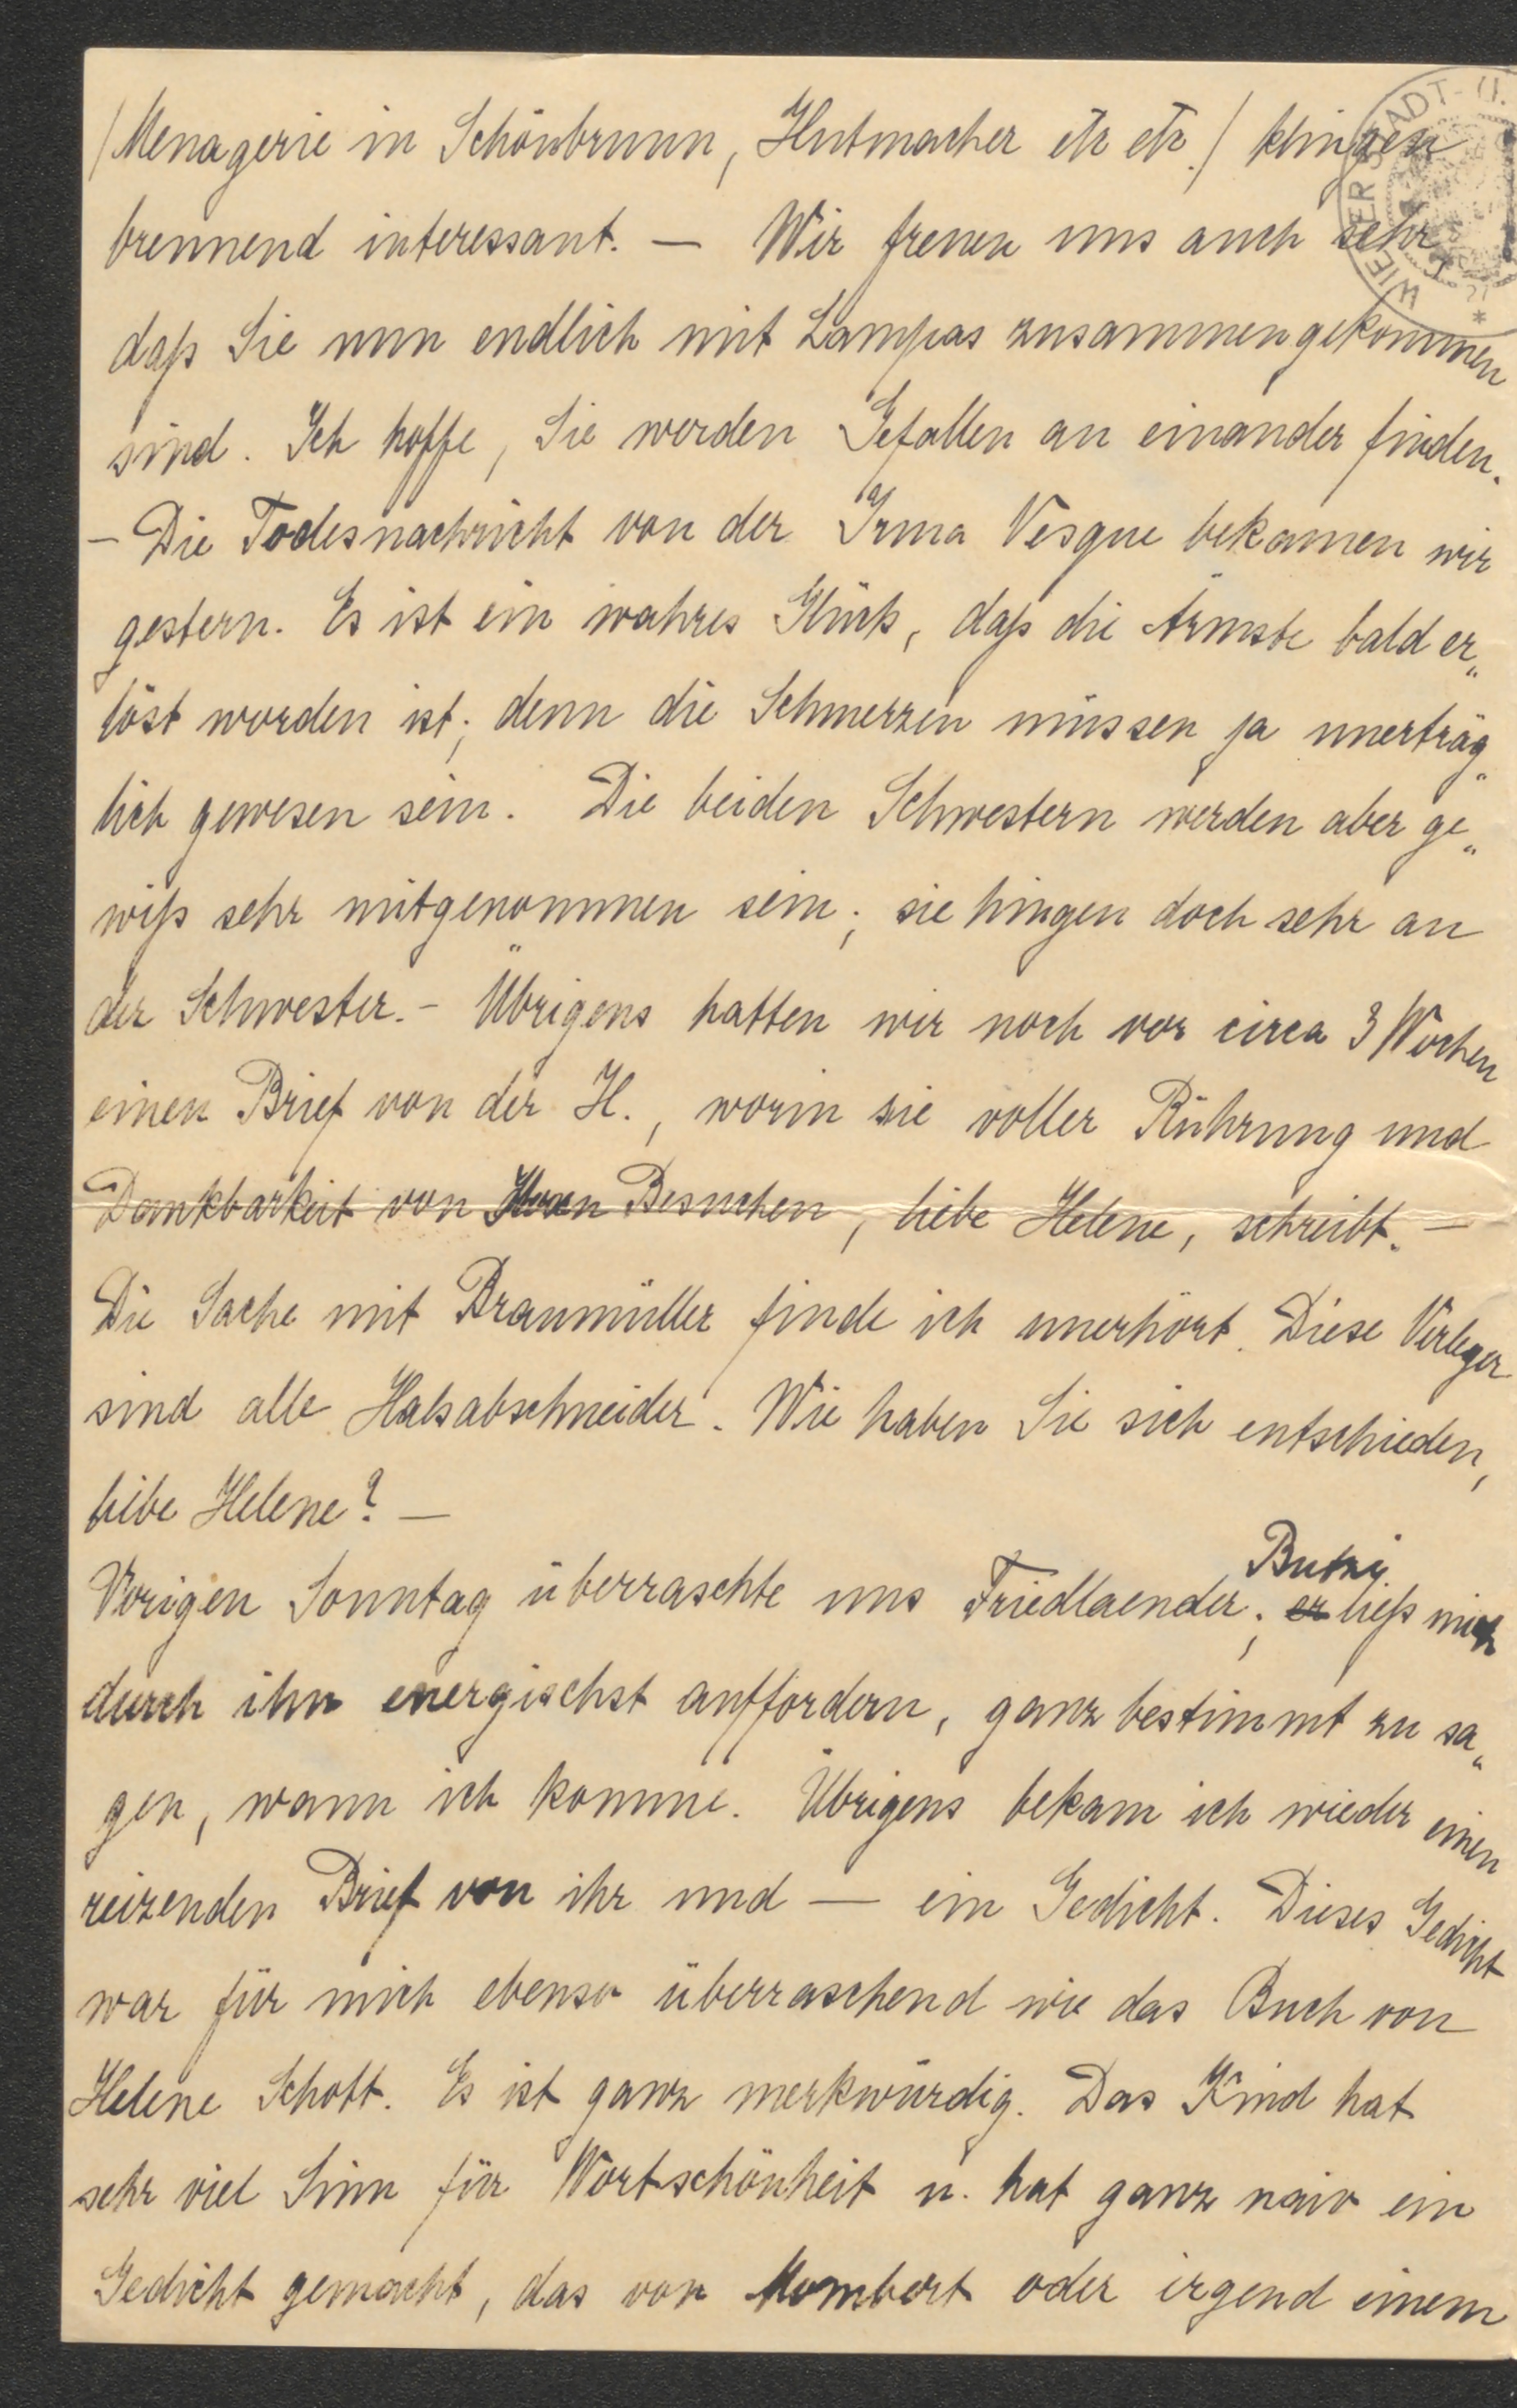 /Menagerie in Schönbrunn, Hutmacher etc etc./ klingen
brennend interessant. — Wir freuen uns auch sehr
daß Sie nun endlich mit Lampas zusammengekommen
sind. Ich hoffe, Sie werden Gefallen an einander finden.
– Die Todesnachricht von der Irma Vesque bekamen wir
gestern. Es ist ein wahres Glück, daß die Ärmste bald er„
löst worden ist; denn die Schmerzen müssen ja unerträg„
lich gewesen sein. Die beiden Schwestern werden aber ge„
wiß sehr mitgenommen sein; sie hingen doch sehr an
der Schwester. – Übrigens hatten wir noch vor circa 3 Wochen
einen Brief von der H., worin sie voller Rührung und
Dankbarkeit von Ihren Besuchen, liebe Helene, schreibt. —
Die Sache mit Braumüller finde ich unerhört. Diese Verleger
sind alle Halsabschneider. Wie haben Sie sich entschieden,
liebe Helene? —
Butzi
Vorigen Sonntag überraschte uns Friedlaender; er ließ mich
durch ihn energischst auffordern, ganz bestimmt zu sa„
gen, wann ich komme. Übrigens bekam ich wieder einen
reizenden Brief von ihr und — ein Gedicht. Dieses Gedicht
war für mich ebenso überraschend wie das Buch von
Helene Schott. Es ist ganz merkwürdig. Das Kind hat
sehr viel Sinn für Wortschönheit u. hat ganz naiv ein
Gedicht gemacht, das von Mombert oder irgend einem
WIENER STADT-